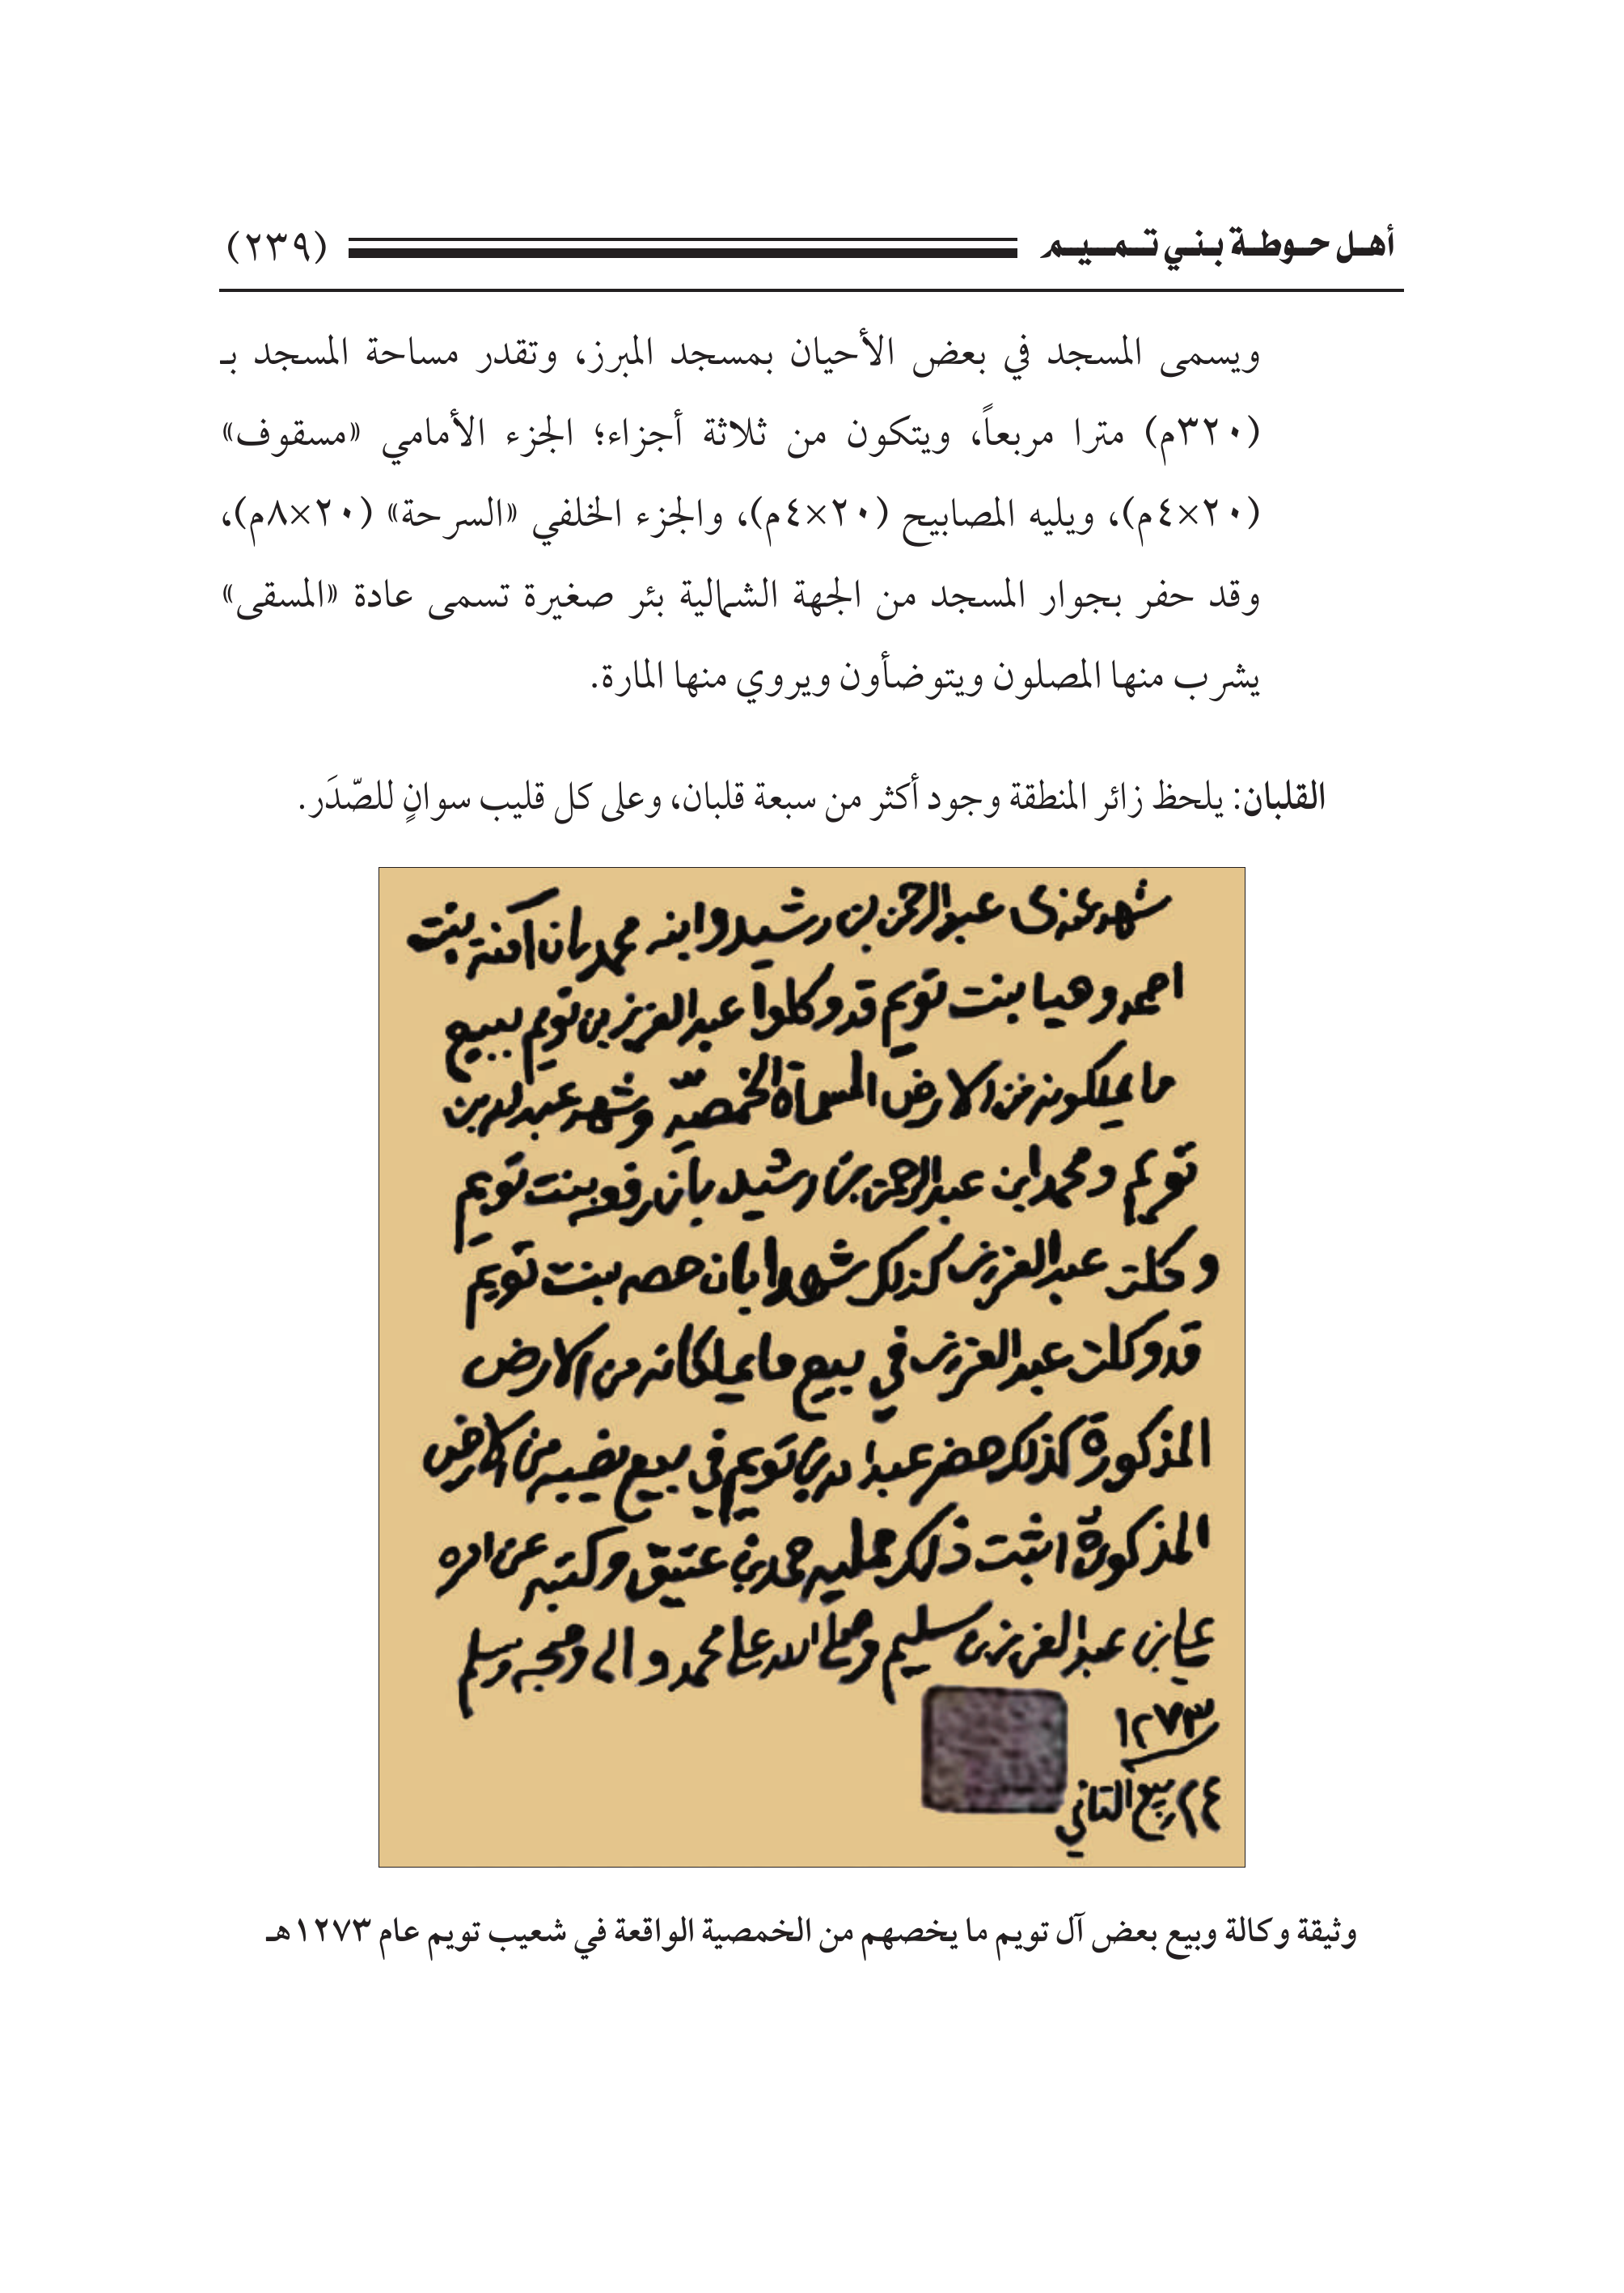 أهل حوطة بني تميم (٢٣٩)
ويسمى المسجد في بعض الأحيان بمسجد المبرز، وتقدر مساحة المسجد بـ
(٣٢٠م) مترا مربعاً، ويتكون من ثلاثة أجزاء؛ الجزء الأمامي «مسقوف»
(٢٠×٤م)، ويليه المصابيح (٢٠×٤م)، والجزء الخلفي «السرحة» (٢٠×٨م)،
وقد حفر بجوار المسجد من الجهة الشمالية بئر صغيرة تسمى عادة «المسقى»
يشرب منها المصلون ويتوضأون ويروي منها المارة.
القلبان: يلحظ زائر المنطقة وجود أكثر من سبعة قلبان، وعلى كل قليب سوانٍ للصّدَر.
شهد عندي عبدالرحمن بن رشيد وابنه محمد بان امنة بنت
احمد وهيا بنت تويم قد وكلوا عبدالعزيز بن تويم ببيع
ما يملكونه من الارض المسماة الخمصيّه وشهد عبدالله بن
تويم ومحمد ابن عبدالرحمن بن رشيد بان رقوه بنت تويم
وكلت عبدالعزيز كذلك شهدا بان حصه بنت تويم
قد وكلت عبدالعزيز في بيع ما يملكانه من الارض
المذكورة كذلك حضر عبدالله بن تويم في بيع نصيبه من الارض
المذكورة اثبت ذلك ممليه حمد بن عتيق وكتبه عن امره
علي بن عبدالعزيز بن سليم وصلى الله على محمد واله وصحبه وسلم
١٢٧٣
٢٤ ربيع الثاني
وثيقة وكالة وبيع بعض آل تويم ما يخصهم من الخمصية الواقعة في شعيب تويم عام ١٢٧٣هـ